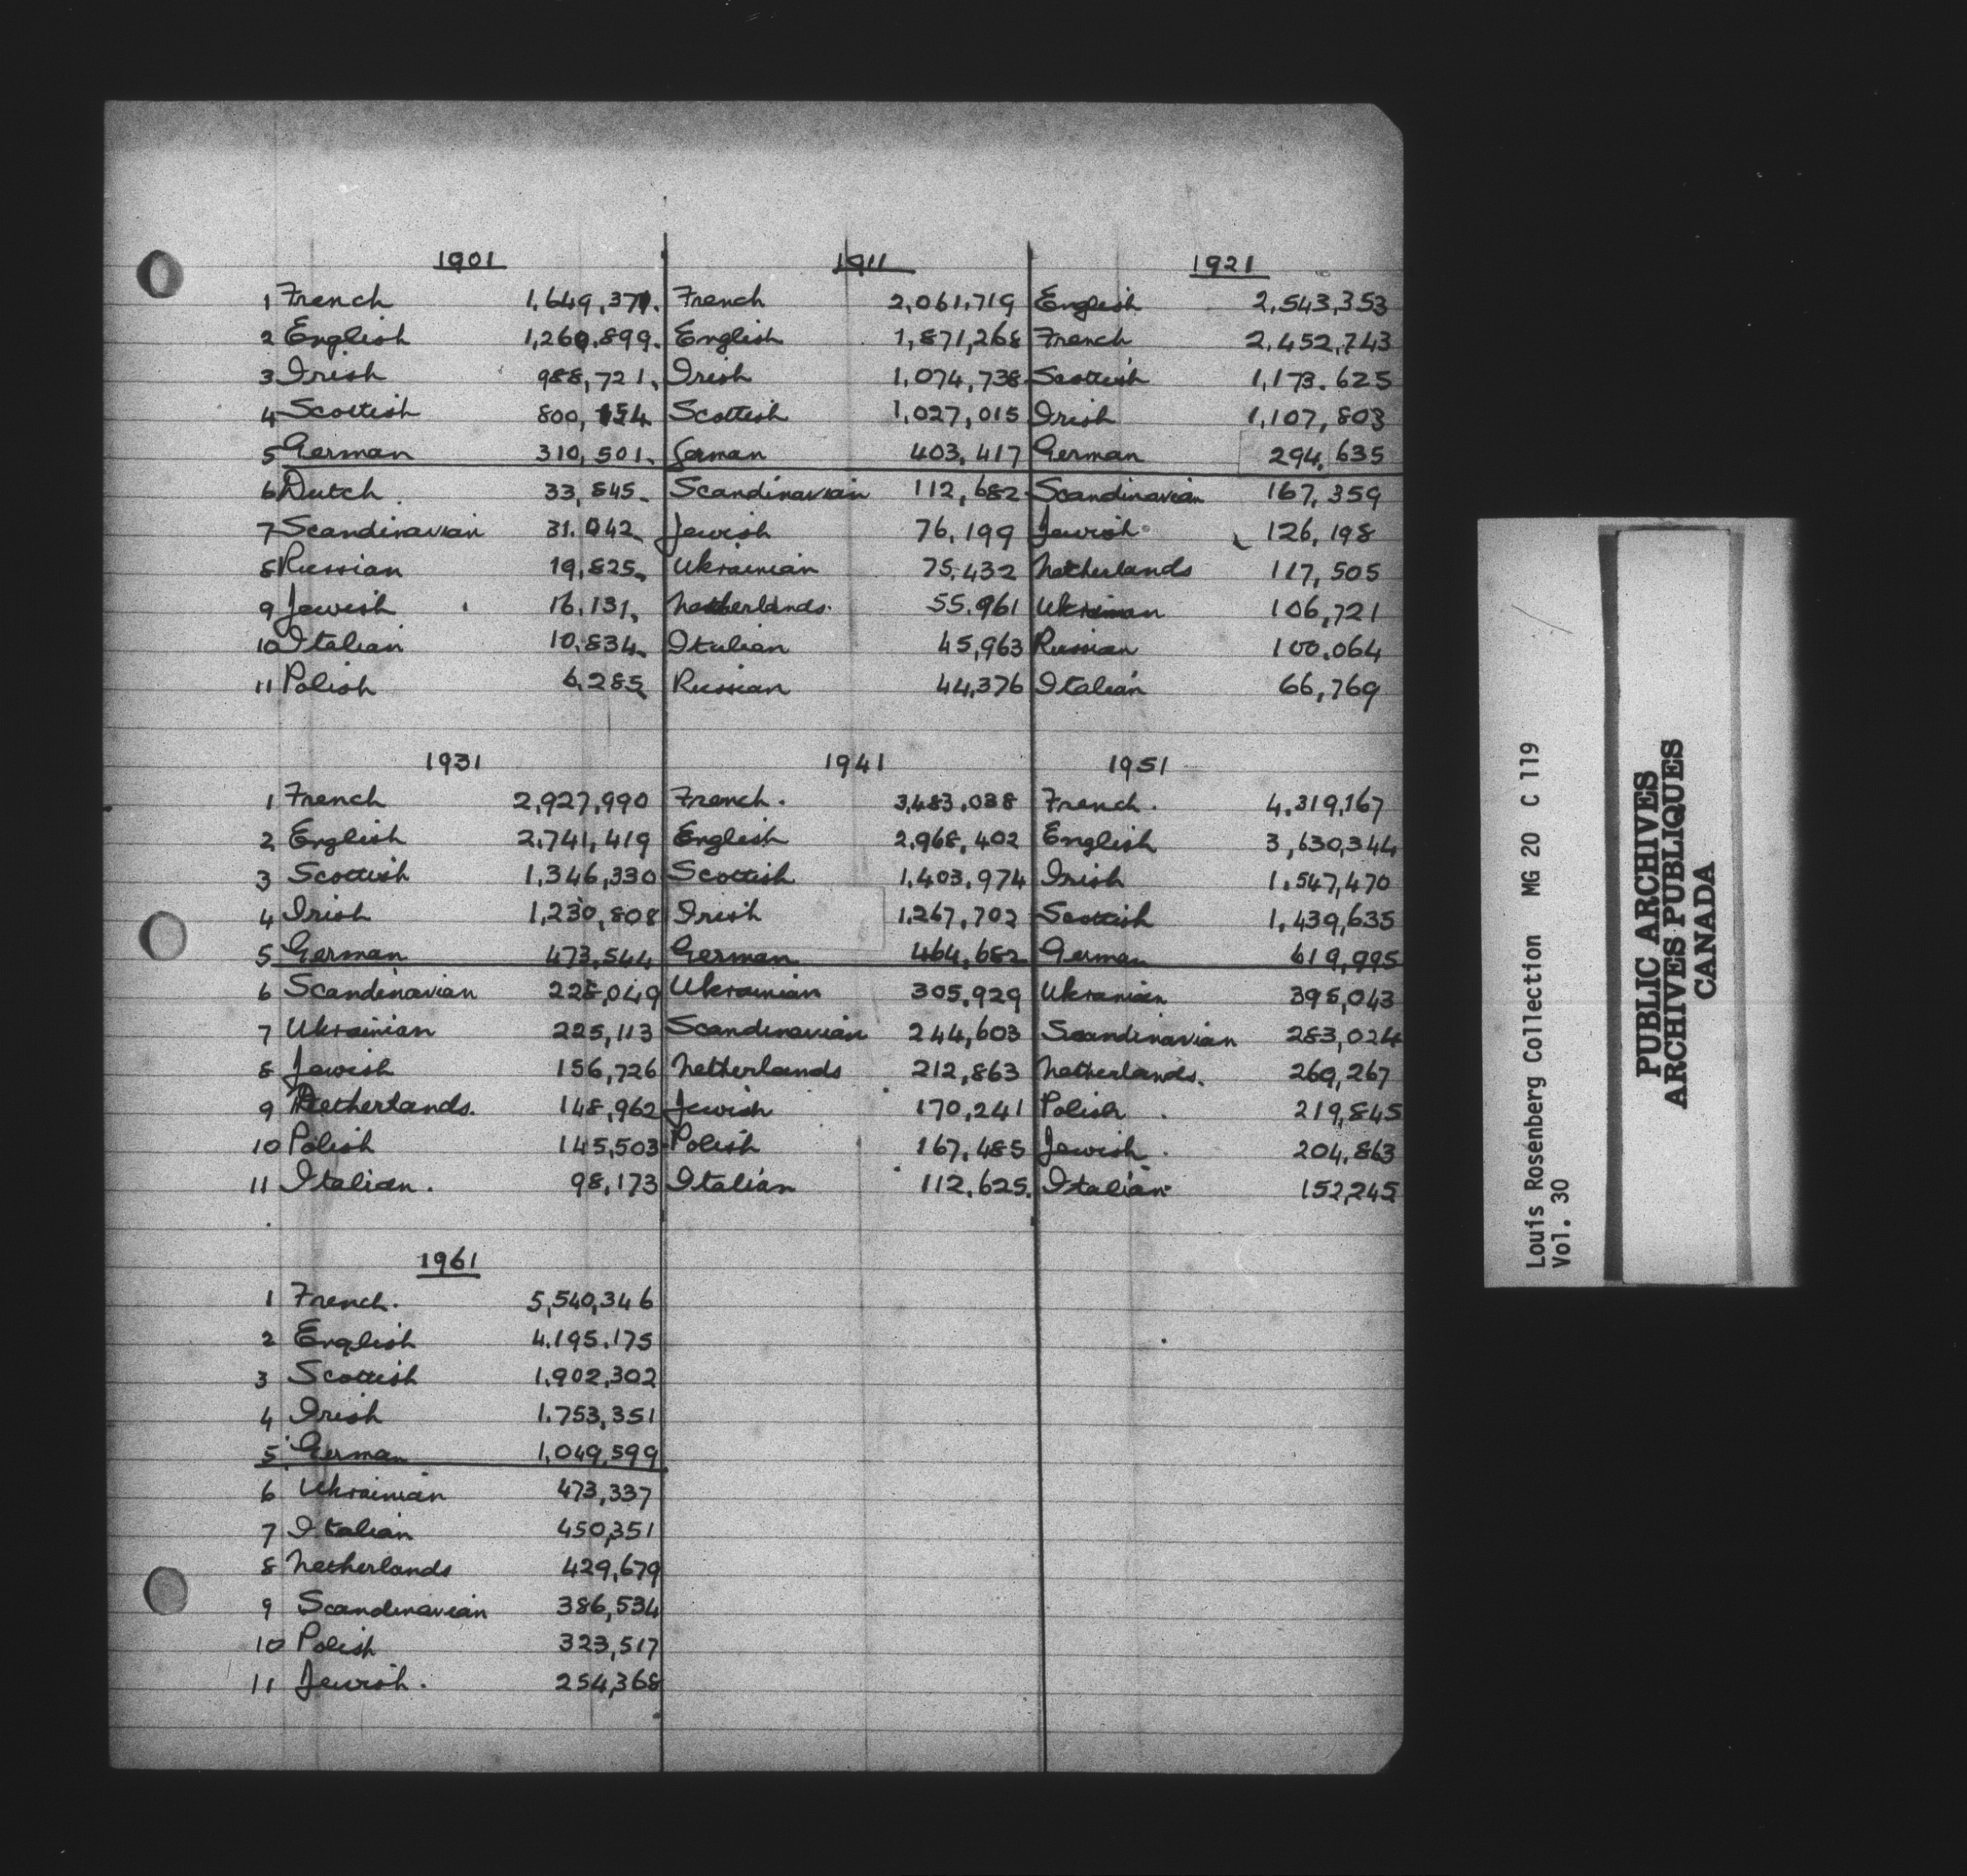 1901 1911 1921
1 French 1,649,371. French 2,061,719 English 2,543,353
2 English 1,260,899. English 1,871,268 French 2,452,743
3 Irish 988,721. Irish 1,074,738 Scottish 1,173,625
4 Scottish 800,154 Scottish 1,027,015 Irish 1,107,803
5 German 310,501. German 403,417 German 294,635
6 Dutch 33,845. Scandinavian 112,682 Scandinavian 167,359
7 Scandinavian 31,042. Jewish 76,199 Jewish 126,198
8 Russian 19,825. Ukrainian 75,432 Netherlands 117,505
9 Jewish 16,131. Netherlands. 55,961 Ukrainian 106,721
10 Italian 10,834. Italian 45,963 Russian 100,064
11 Polish 6,285 Russian 44,376 Italian 66,769
1931 1941 1951
1 French 2,927,990 French. 3,483,038 French. 4,319,167
2 English 2,741,419 English 2,968,402 English 3,630,344
3 Scottish 1,346,330 Scottish 1,403,974 Irish 1,547,470
4 Irish 1,230,808 Irish 1,267,702 Scottish 1,439,635
5 German 473,544 German 464,682 German 619,995
6 Scandinavian 228,049 Ukrainian 305,929 Ukranian 395,043
7 Ukrainian 225,113 Scandinavian 244,603 Scandinavian 283,024
8 Jewish 156,726 Netherlands 212,863 Netherlands. 269,267
9 Netherlands. 148,962 Jewish 170,241 Polish 219,845
10 Polish 145,503 Polish 167,485 Jewish. 204,863
11 Italian. 98,173 Italian 112,625. Italian 152,245
1961
1 French. 5,540,346
2 English 4,195,175
3 Scottish 1,902,302
4 Irish 1,753,351
5 German 1,049,599
6 Ukrainian 473,337
7 Italian 450,351
8 Netherlands 429,679
9 Scandinavian 386,534
10 Polish 323,517
11 Jewish. 254,368
Louis Rosenberg Collection MG 20 C 119
Vol. 30
PUBLIC ARCHIVES
ARCHIVES PUBLIQUES
CANADA